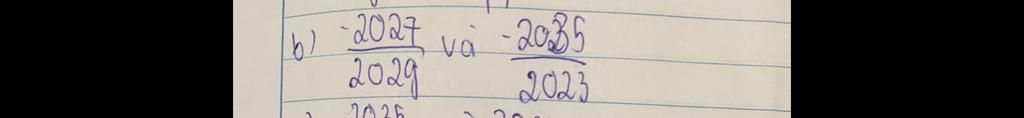 b) -2027/2029 và -2035/2023